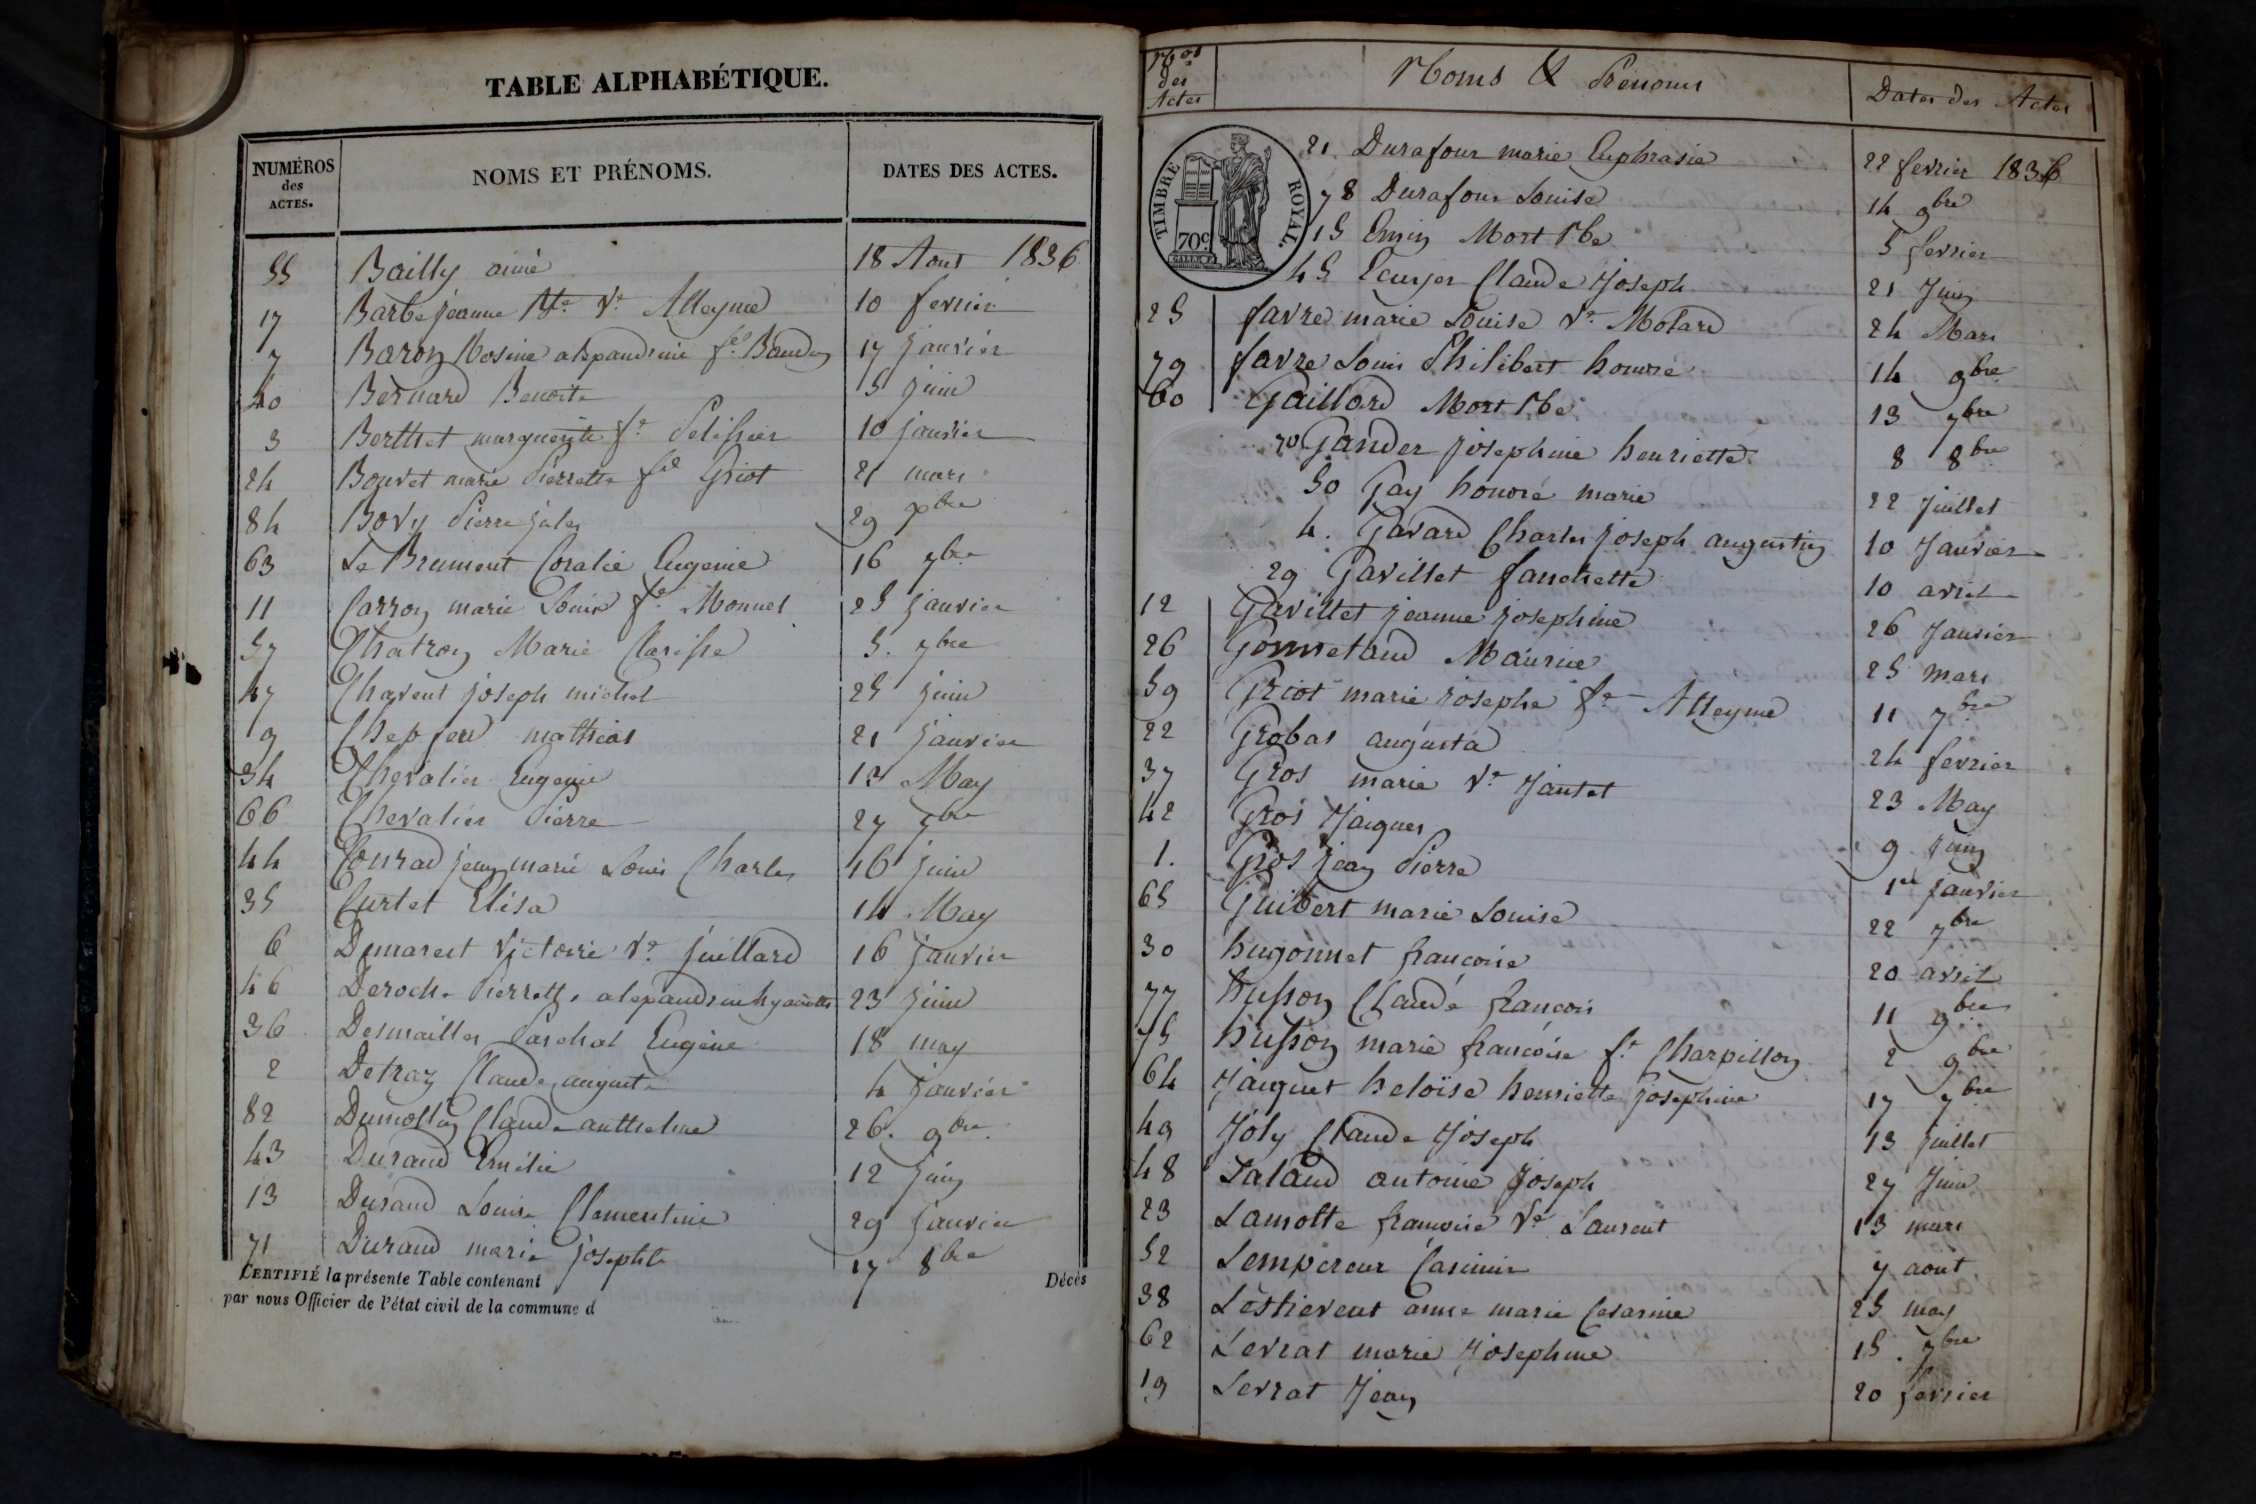 TABLE ALPHABÉTIQUE.
NUMÉROS des ACTES. NOMS ET PRÉNOMS. DATES DES ACTES.
55 Bailly aimé 18 Aout 1836
17 Barbe jeanne Ve Alleyme 10 fevrier
7 Baron Rosine alexandrine fe 17 janvier
40 Bernard Benoite 5 juin
3 Berthet marguerite fe Pelissier 10 janvier
24 Bouvet marie Pierrette fe Griot 21 mars
84 Bovy Pierre jules 29
63 Le Brument Coralie Eugenie 16 7bre
11 Carron marie Louise fe Monnet 25 janvier
57 Chatron Marie Clarisse 5. 7bre
47 Chavent joseph michel 25 juin
9 mathias 21 janvier
34 Chevalier Eugenie 13 May
66 Chevalier Pierre 27 7bre
44 Conrad jean marie Louis Charles 16 juin
35 Curtet Elisa 14 May
6 Demarest Victoire Ve juillard 16 janvier
46 Deroche Pierrette alexandrine hyacinthe 23 juin
36 Desmailles Paschal Eugène 18 may
2 Detraz Claude auguste 4 janvier
82 Dumollin Claude anthelme 26. 9bre
43 Durand Emélie 12 juin
13 Durand Louise Clementine 29 janvier
71 Durand marie josephte 17 8bre
CERTIFIÉ la présente Table contenant Décès
par nous Officier de l'état civil de la commune d
Nos des Actes Noms & Prénoms Dates des Actes
TIMBRE ROYAL.
70c
21. Durafour marie Euphrasie 22 fevrier 1836
78 Durafour Louise 14 9bre
15 Emin Mort Né 5 fevrier
45 Ecuyer Claude Joseph 21 Juin
25 favre marie Louise Ve Molard 24 Mars
79 favre Louis Philibert honoré 14 9bre
60 Gaillard Mort Né 13 7bre
70 Gander josephine henriette 8 8bre
50 Gay honoré marie 22 Juillet
4. Gavard Charles joseph augustin 10 Janvier
29 Gavillet fanchette 10 avril
12 Gavillet jeanne josephine 26 Janvier
26 Gonnetand Maurice 25 mars
59 Griot marie josephe fe Alleyme 11 7bre
22 Grobas augusta 24 fevrier
37 Gros marie Ve Jantet 23 May
42 Gros Jacques 9 juin
1. Gros jean Pierre 1er janvier
65 Guibert marie Louise 22 7bre
30 hugonnet francoise 20 avril
77 husson Claude francois 11 9bre
75 husson marie francoise fe Charpillon 2 9bre
64 Jacquet heloïse henriette josephine 17 7bre
49 Joly Claude Joseph 13 juillet
48 Laland antoine Joseph 27 Juin
23 Lamotte francoise Ve Laurent 13 mars
52 Lempereur Casimir 7 aout
38 Léstievent anne marie Cesarine 25 may
62 Levrat marie Josephine 15. 7bre
19 Levrat Jean 20 fevrier